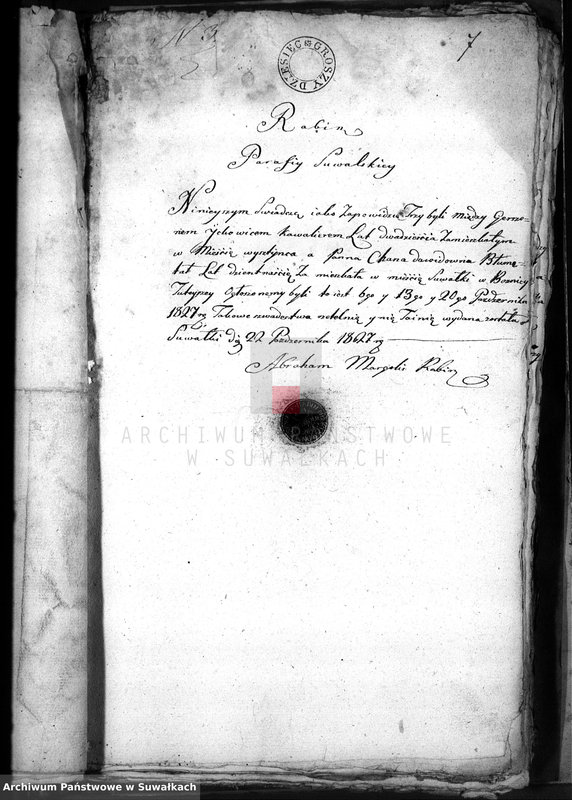 N 3
7
DZIESIĘC GROSZY
Rabin
Parafiy Suwalskiey
Ninieyszym Swiadczę iako Zapowiedzi Trzy byli między Gerszo=
nem Kawalerem Lat dwadzieścia Zamieszkałym
w Mieście wysztynca a Panną Chaną dawidowną
Lat dziewietnaście Za mieszkałą w mieście Suwałki w Bożnicy
Tuteyszy Ogłoszonemy byli to iest 6go y 13go y 20go Pazdziernika
1827 rg Takowe szwadectwo y nie Tainie wydana została
Suwałki dg 22 Pazdziernika 1827 rg
Abraham Margolis Rabin
ARCHIWUM PAŃSTWOWE
W SUWAŁKACH
Archiwum Państwowe w Suwałkach